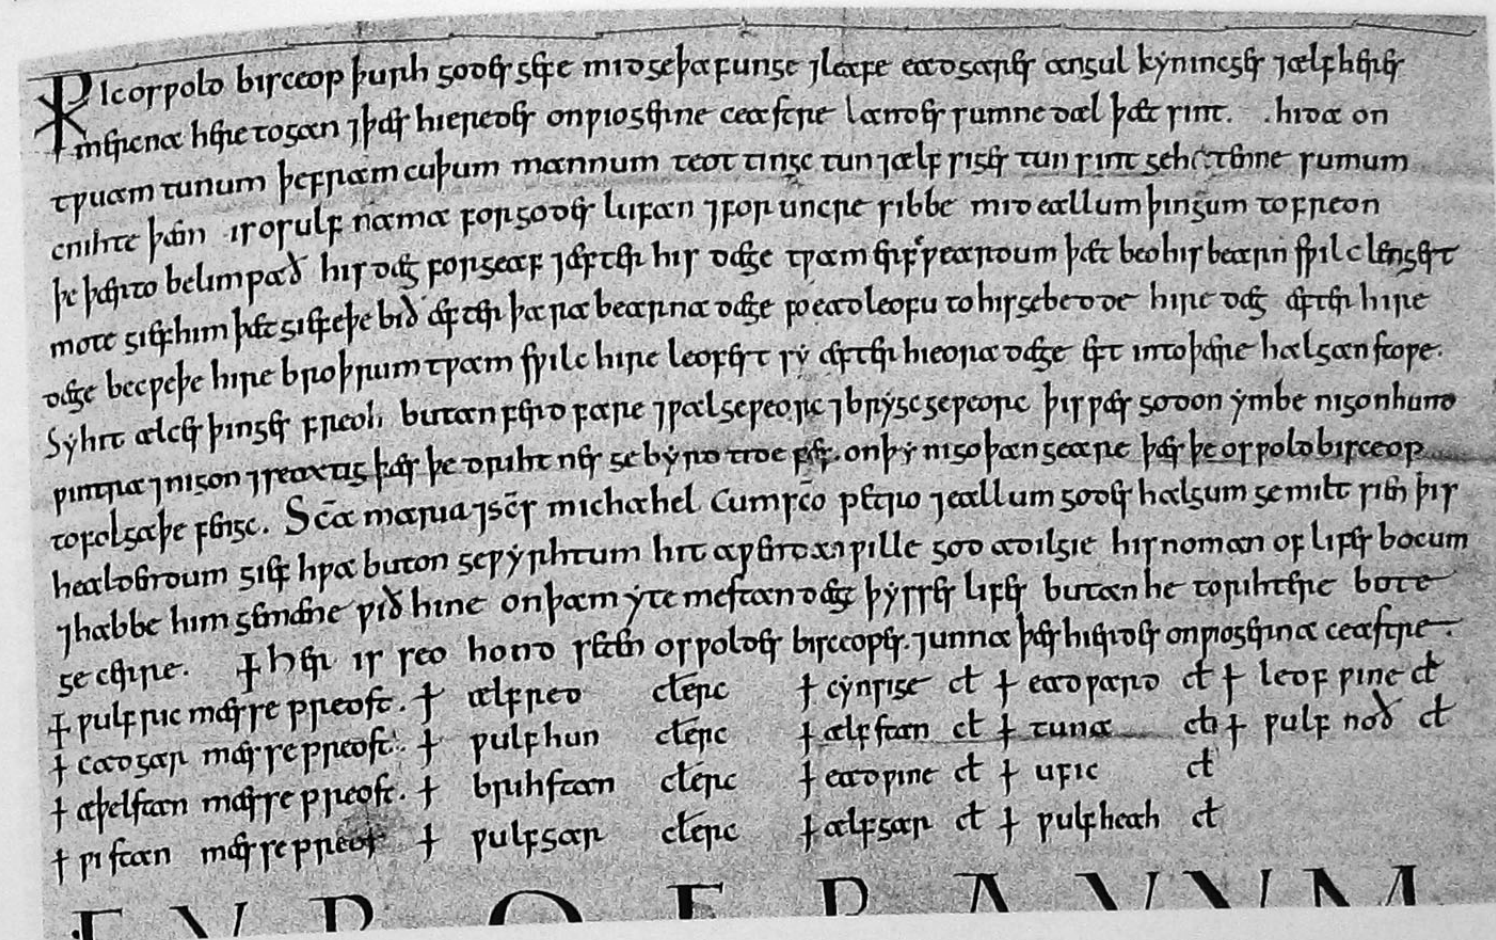 Ic osƿold bisceop þurh godes gefe mid geþafunge ⁊ leafe eadgares angul kyninges ⁊ ælfheres
mercna heretogan ⁊ þæs hieredes on ƿiogerne ceastre landes sumne dæl þæt sint . . hida on
tƿuam tunum þe fram cuþum mannum teottingc tun ⁊ ælfsiges tun sint gehatenne sumum
cnihte þæm is osulf nama for godes lufan ⁊ for uncre sibbe mid eallum þingum to freon
þe þærto belimpað his dæg forgeaf ⁊ æfter his dæge tƿam erfƿeardum þæt beo his bearn sƿilc lenger
mote gif him þæt gifeþe bið æfter þara bearna dæge fo eadleofu to his gebedde hire dæg æfter hire
dæge becƿeþe hire broþrum tƿam sƿilc hire leofest sy æfter hieora dæge eft into þære halgan stoƿe.
Sy hit ælces þinges freoh butan ferd fare ⁊ ƿalgeƿeorc ⁊ brycgeƿeorc þis ƿæs gedon ymbe nigonhund
ƿintra ⁊ nigon ⁊ sextig þæs þe drihtnes gebyrdtide ƿæs on þy nigoþan geare þæs þe osƿold bisceop
to folgaþe fenge. Scā maria ⁊ scs michahel cum sco petro ⁊ eallum godes halgum gemiltsien þis
healdendum gif hƿa buton geƿyrhtum hit aƿendan ƿille god adilgie his noman of lifes bocum
⁊ habbe him gemæne ƿið hine on þam ytemestan dæge þysses lifes butan he to rihtere bote
gecerre. ✝ her is seo hond seten osƿoldes bisceopes. ⁊ unna þæs hieredes on ƿiogerna ceastre.
✝ ƿulfric mæssepreost. ✝ ælfred cleric ✝ cynsige ct ✝ eadƿard ct ✝ leofƿine ct
✝ eadgar mæssepreost. ✝ ƿulfhun cleric ✝ ælfstan ct ✝ tuna ct ✝ ƿulfnoð ct
✝ æþelstan mæssepreost. ✝ bryhstan cleric ✝ eadƿine ct ✝ ufic ct
✝ ƿistan mæssepreost ✝ ƿulfgar cleric ✝ ælfgar ct ✝ ƿulfheah ct